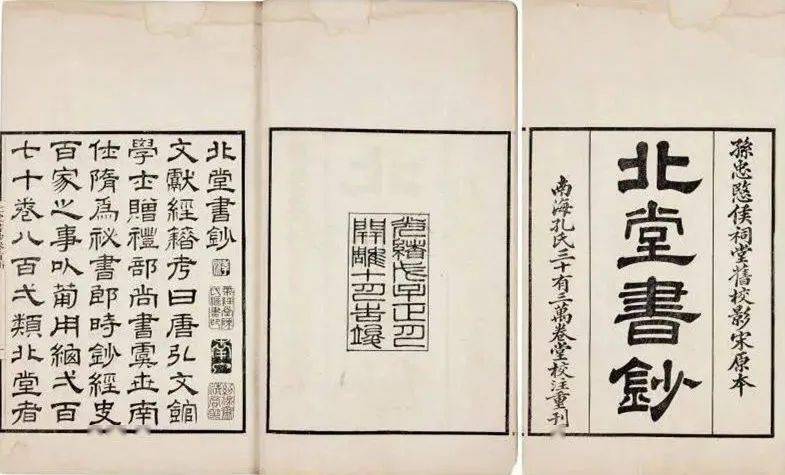 孫忠愍侯祠堂舊校影宋原本
北堂書鈔
南海孔氏三十有三萬卷堂校注重刊
光緒戊子正月
開雕十月告竣
北堂書鈔
文獻經籍考曰唐弘文館
學士贈禮部尚書虞世南
仕隋爲祕書郎時鈔經史
百家之事㕥葡用緫弌百
七十卷八百弌類北堂者